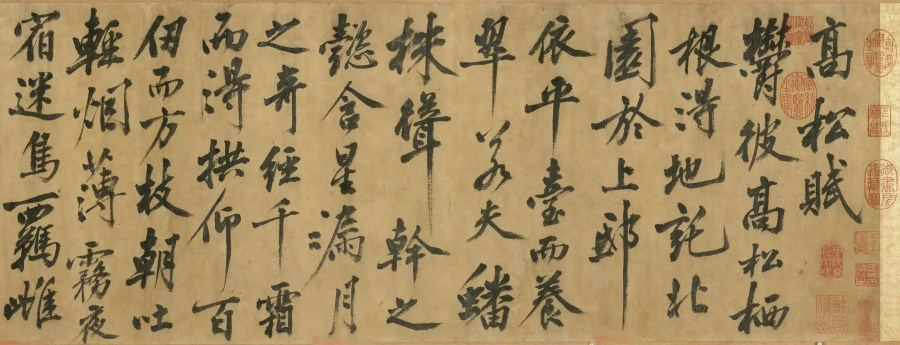 高松賦
欝彼高松栖
根得地託北
園於上邸
依平臺而養
翠若夫蟠
株聳幹之
懿含星漏月
之奇經千霜
而得拱仰百
仞而方枝朝吐
輕烟薄霧夜
宿迷隽羈雌